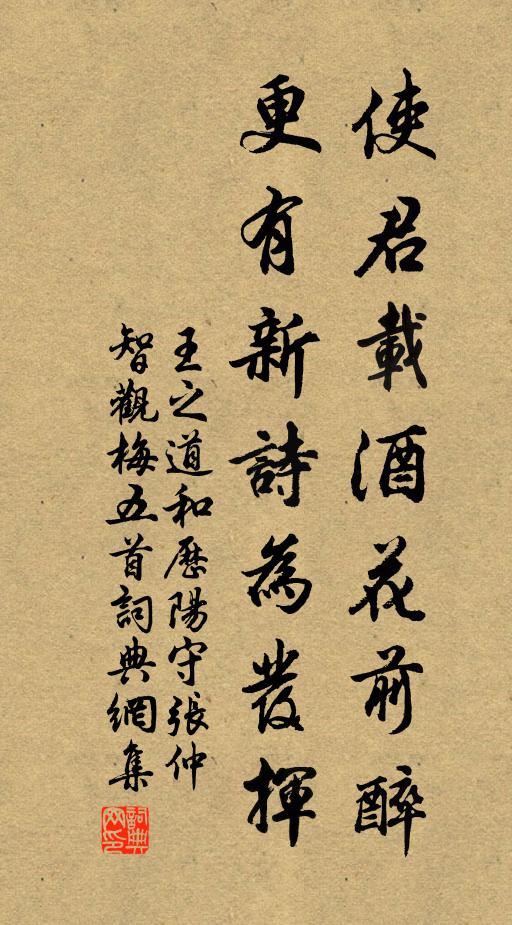 使君載酒花前醉
更有新詩為發揮
王之道和歷陽守張仲
智觀梅五首詞典網集
詞典网印